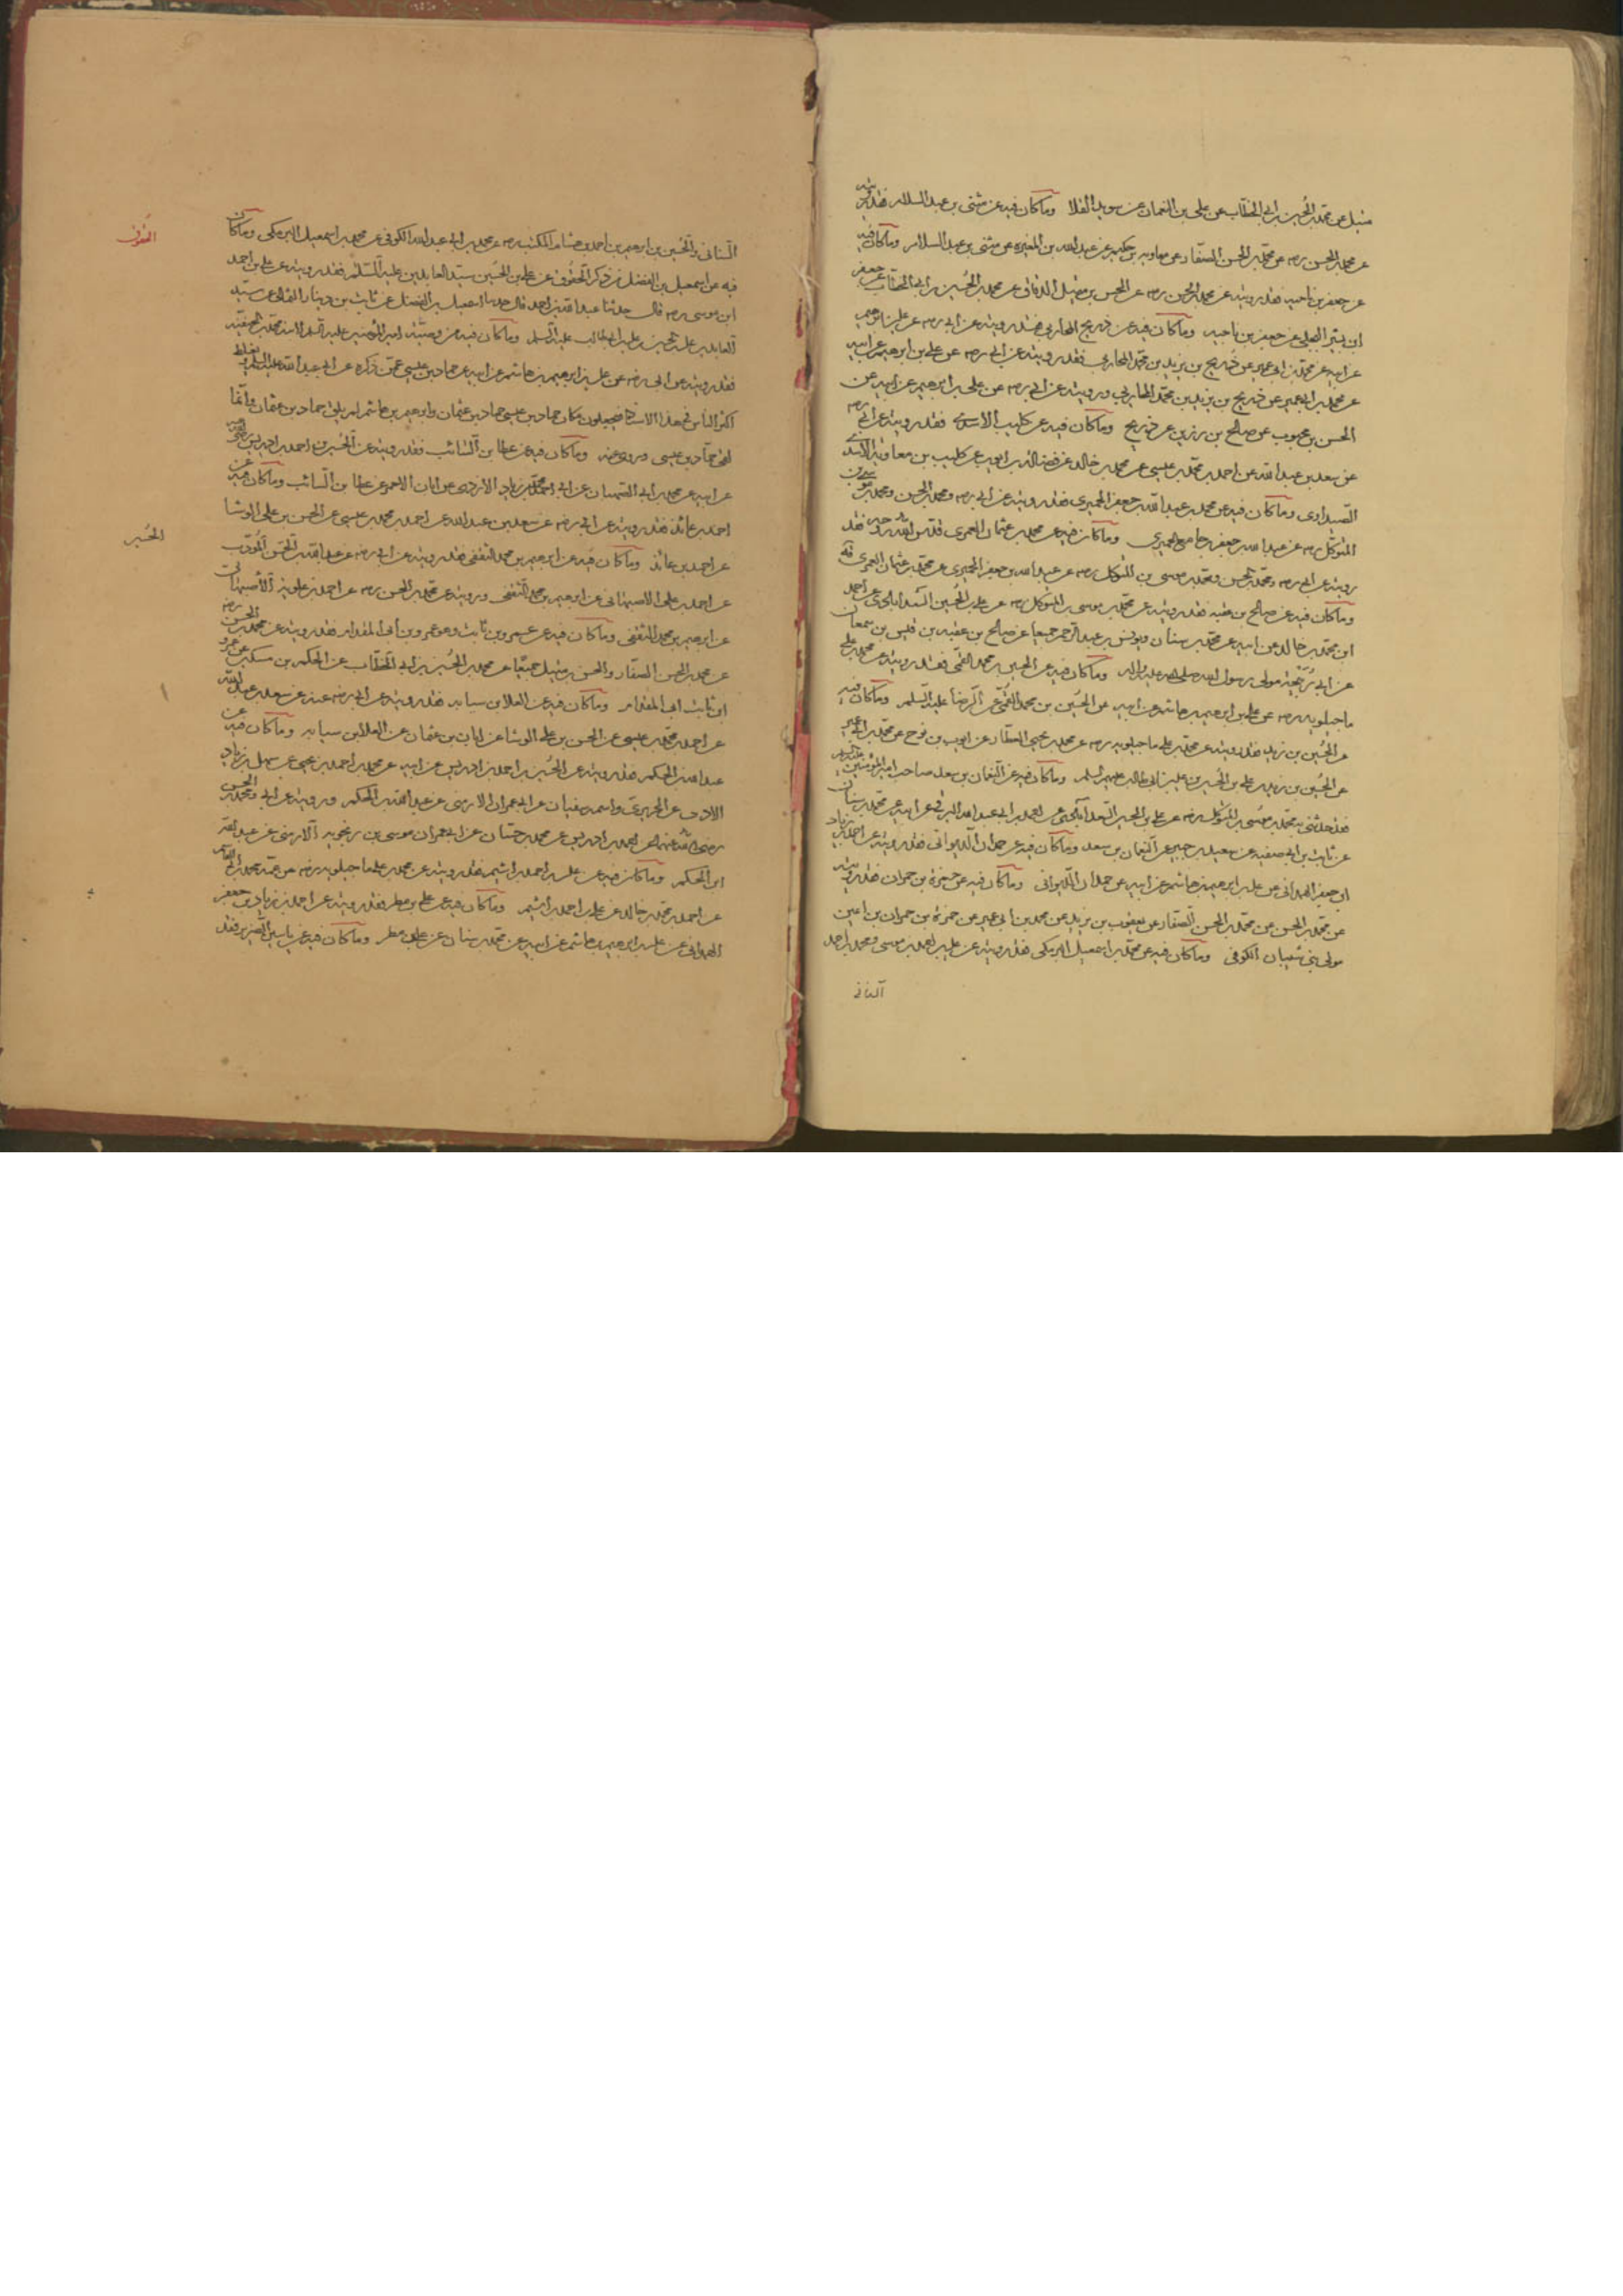 متيل عن محمد بن الحسين بن ابي الخطاب عن علي بن النعمان عن سويد القلا وماكان فيه عن مثنى بن عبد السلام فقد رويته
عن محمد بن الحسن رضه عن محمد بن الحسن الصفار عن معاوية بن حكيم عن عبد الله بن المغيرة عن مثنى بن عبد السلام وماكان فيه
عن جعفر بن ناجيه فقد رويته عن محمد بن الحسن رضه عن الحسن بن متيل الدقاق عن محمد بن الحسين بن ابي الخطاب عن جعفر
ابن بشير البجلي عن جعفر بن ناجيه وماكان فيه عن ذريح المحاربي فقد رويته عن ابي رضه عن علي بن ابرهيم
عن ابيه عن محمد بن ابي عمير عن ذريح بن يزيد بن محمد المحاربي فقد رويته عن ابي رضه عن علي بن ابرهيم عن ابيه
عن محمد بن ابي عمير عن ذريح بن يزيد بن محمد المحاربي ورويته عن ابي رضه عن علي بن ابرهيم عن ابيه عن
الحسن بن محبوب عن صالح بن رزين عن ذريح وماكان فيه عن كليب الاسدي فقد رويته عن ابي رضه
عن سعد بن عبد الله عن احمد بن محمد بن عيسى عن محمد بن خالد عن فضالة بن ايوب عن كليب بن معاوية الاسدي
الصيداوي وماكان فيه عن محمد بن عبد الله بن جعفر الحميري فقد رويته عن ابي رضه ومحمد بن الحسن ومحمد بن موسى بن
المتوكل رضه عن عبد الله بن جعفر بن جامع الحميري وماكان فيه عن محمد بن عثمان العمري قدس الله روحه فقد
رويته عن ابي رضه ومحمد بن الحسن ومحمد بن موسى بن المتوكل رضه عن عبد الله بن جعفر الحميري عن محمد بن عثمان العمري
وماكان فيه عن صالح بن عقبه فقد رويته عن محمد بن موسى بن المتوكل رضه عن علي بن الحسين السعدابادي عن احمد
ابن محمد بن خالد عن ابيه عن محمد بن سنان ويونس بن عبد الرحمن جميعا عن صالح بن عقبه بن قيس بن سمعان
عن ابي ربيحة مولى رسول الله صلى الله عليه واله وماكان فيه عن الحسين بن محمد القمي فقد رويته عن محمد بن علي
ماجيلويه رضه عن علي بن ابرهيم بن هاشم عن ابيه عن الحسين بن محمد القمي عن الرضا عليه السلم وماكان فيه
عن الحسين بن زيد فقد رويته عن محمد بن علي ماجيلويه رضه عن محمد بن يحيى العطار عن ايوب بن نوح عن محمد بن ابي عمير
عن الحسين بن زيد بن علي بن الحسين بن علي بن ابي طالب عليهم السلم وماكان فيه عن النعمان بن سعد صاحب امير المؤمنين
فقد حدثني به محمد بن موسى بن المتوكل رضه عن علي بن الحسين السعدابادي عن احمد بن ابي عبد الله البرقي عن ابيه عن محمد بن سنان
عن ثابت بن ابي صفيه عن سعيد بن جبير عن النعمان بن سعد وماكان فيه عن حمدان الديواني فقد رويته عن احمد بن زياد
ابن جعفر الهمداني عن علي بن ابرهيم بن هاشم عن ابيه عن حمدان الديواني وماكان فيه عن حمزة بن حمران فقد رويته
عن محمد بن الحسن عن محمد بن الحسن الصفار عن يعقوب بن يزيد عن محمد بن ابي عمير عن حمزة بن حمران بن اعين
مولى بني شيبان الكوفي وماكان فيه عن محمد بن اسمعيل البرمكي فقد رويته عن علي بن احمد بن موسى ومحمد بن احمد
السناني
السناني والحسين بن ابرهيم بن احمد بن هشام المكتب رضه عن محمد بن ابي عبد الله الكوفي عن محمد بن اسمعيل البرمكي وماكان
الحقوق
فيه عن اسمعيل بن الفضل من ذكر الحقوق عن علي بن الحسين سيد العابدين عليه السلم فقد رويته عن علي بن احمد
ابن موسى رضه قال حدثنا عبد الله بن احمد قال حدثنا اسمعيل بن الفضل عن ثابت بن دينار الثمالي عن سيد
العابدين علي بن الحسين بن علي بن ابي طالب عليه السلم وماكان فيه من وصية امير المؤمنين عليه السلم لابنه محمد بن الحنفيه
فقد رويته عن ابي رضه عن علي بن ابرهيم بن هاشم عن ابيه عن حماد بن عيسى عمن ذكره عن ابي عبد الله عليه السلم ويغلط
اكثر الناس في هذا الاسناد فيجعلون مكان حماد بن عيسى حماد بن عثمان وابرهيم بن هاشم لم يلق حماد بن عثمان وانما
لقي حماد بن عيسى وروى عنه وماكان فيه عن عطا بن السائب فقد رويته عن الحسين بن احمد بن ادريس رضه
عن ابيه عن محمد بن ابي الصهبان عن ابي احمد محمد بن زياد الازدي عن ابان الاحمر عن عطا بن السائب وماكان فيه عن
احمد بن عائذ فقد رويته عن ابي رضه عن سعد بن عبد الله عن احمد بن محمد بن عيسى عن الحسن بن علي الوشا
الخبر
عن احمد بن عائذ وماكان فيه عن ابرهيم بن محمد الثقفي فقد رويته عن ابي رضه عن عبد الله بن الحسن المؤدب
عن احمد بن علي الاصبهاني عن ابرهيم بن محمد الثقفي ورويته عن محمد بن الحسن رضه عن احمد بن علويه الاصبهاني
عن ابرهيم بن محمد الثقفي وماكان فيه عن عمرو بن ثابت وهو عمرو بن ابي المقدام فقد رويته عن محمد بن الحسن رضه
عن محمد بن الحسن الصفار والحسن بن متيل جميعا عن محمد بن الحسين بن ابي الخطاب عن الحكم بن مسكين عن عمرو
ابن ثابت ابي المقدام وماكان فيه عن العلا بن سيابه فقد رويته عن ابي رضه عن سعد بن عبد الله
عن احمد بن محمد بن عيسى عن الحسن بن علي الوشا عن ابان بن عثمان عن العلا بن سيابه وماكان فيه عن
عبد الله بن الحكم فقد رويته عن الحسين بن احمد بن ادريس عن ابيه عن محمد بن احمد بن يحيى عن سهل بن زياد
الادمي عن الجريري واسمه سفيان عن ابي عمران الارمني عن عبد الله بن الحكم ورويته عن ابي ومحمد بن الحسن
رضي الله عنهما عن احمد بن ادريس عن محمد بن حسان عن ابي عمران موسى بن زنجويه الارمني عن عبد الله
ابن الحكم وماكان فيه عن علي بن احمد بن اشيم فقد رويته عن محمد بن علي ماجيلويه رضه عن عمه محمد بن ابي القاسم
عن احمد بن محمد بن خالد عن علي بن احمد بن اشيم وماكان فيه عن علي بن مطر فقد رويته عن احمد بن زياد بن جعفر
الهمداني عن علي بن ابرهيم بن هاشم عن ابيه عن محمد بن سنان عن علي بن مطر وماكان فيه عن ياسين الضرير فقد